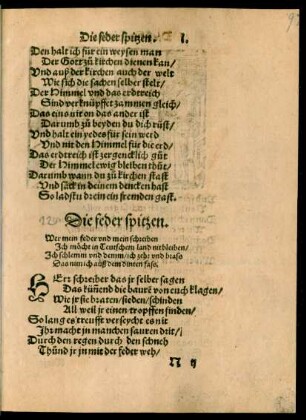 Die feder spitzen. I.
Den halt ich für ein weysen man
Der Gott zů kirchen dienen kan/
Vnd auß der kirchen auch der welt
Wie sich die sachen selber stelt/
Der Himmel vnd das erdtreich
Sind verknüpffet zammen gleich/
Das eins vit on das ander ist
Darumb zů beyden du dich rüst/
Vnd halt ein yedes für sein werd
Vnd nit den Himmel für die erd/
Das erdtreich ist zergencklich gůt
Der Himmel ewig bleiben thůt/
Darumb wann du zů kirchen stast
Vnd säck in deinem dencken hast
So ladstu drein ein frembden gast.
Die feder spitzen.
Wer mein feder vnd mein schreiben
Ich möcht in Teutschem land nit bleiben/
Ich schlemm vnd demm/ich zehr vnd braß
Das nim ich auß dem dinten faß.
HErr schreiber das jr selber sagen
Das künnend die baurē von euch klagen/
Wie jr sie braten/sieden/schinden
All weil jr einen tropffen finden/
So lang es treufft verseycht es nit
Ihr macht jn manchen sauren drit/
Durch den regen durch den schneh
Thůnd jr jn mit der feder weh/